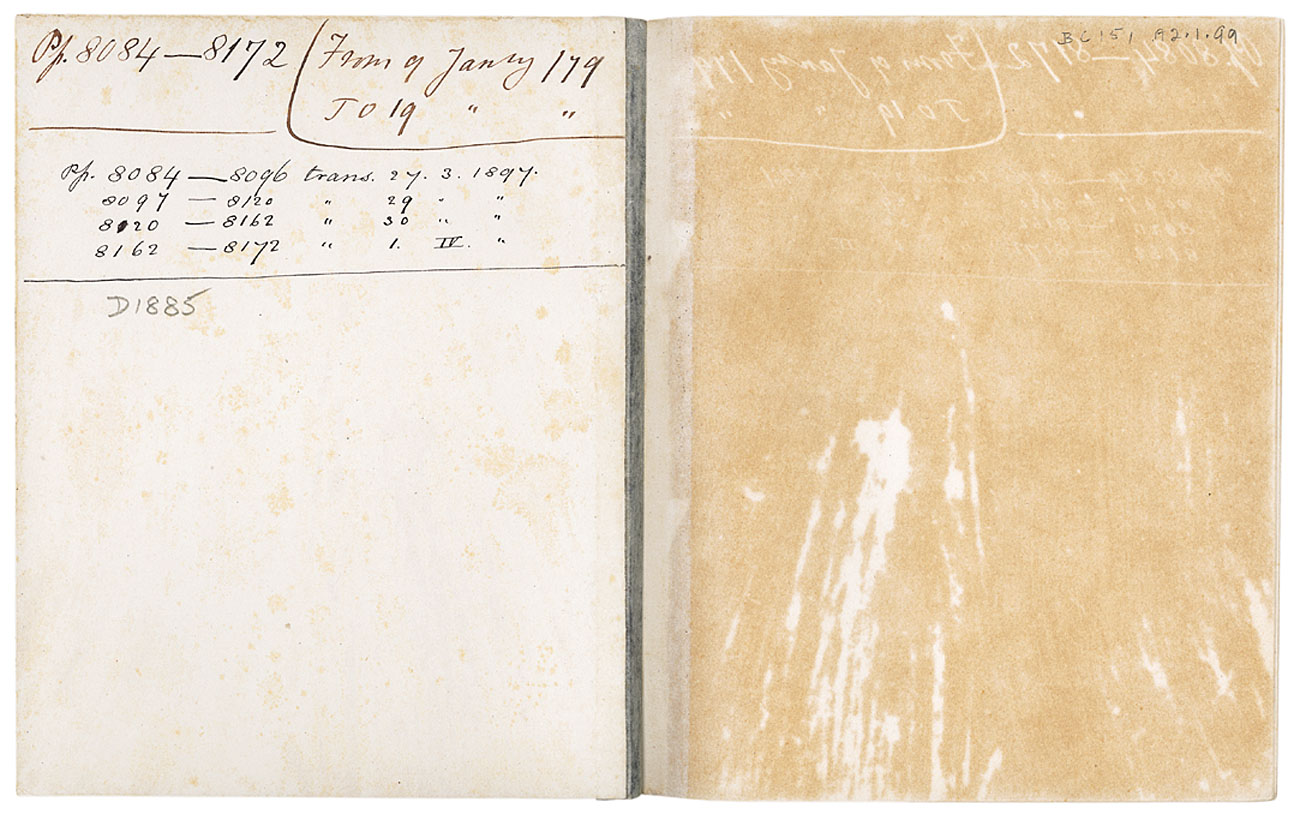 Pp. 8084—8172 (From 9 Janry 179
TO 19 " "
Pp. 8084—8096 trans. 27. 3. 1897.
8097 — 8120 " 29 " "
8120 — 8162 " 30 " "
8162 — 8172 " 1. IV. "
D1885
BC151 A2.1.99